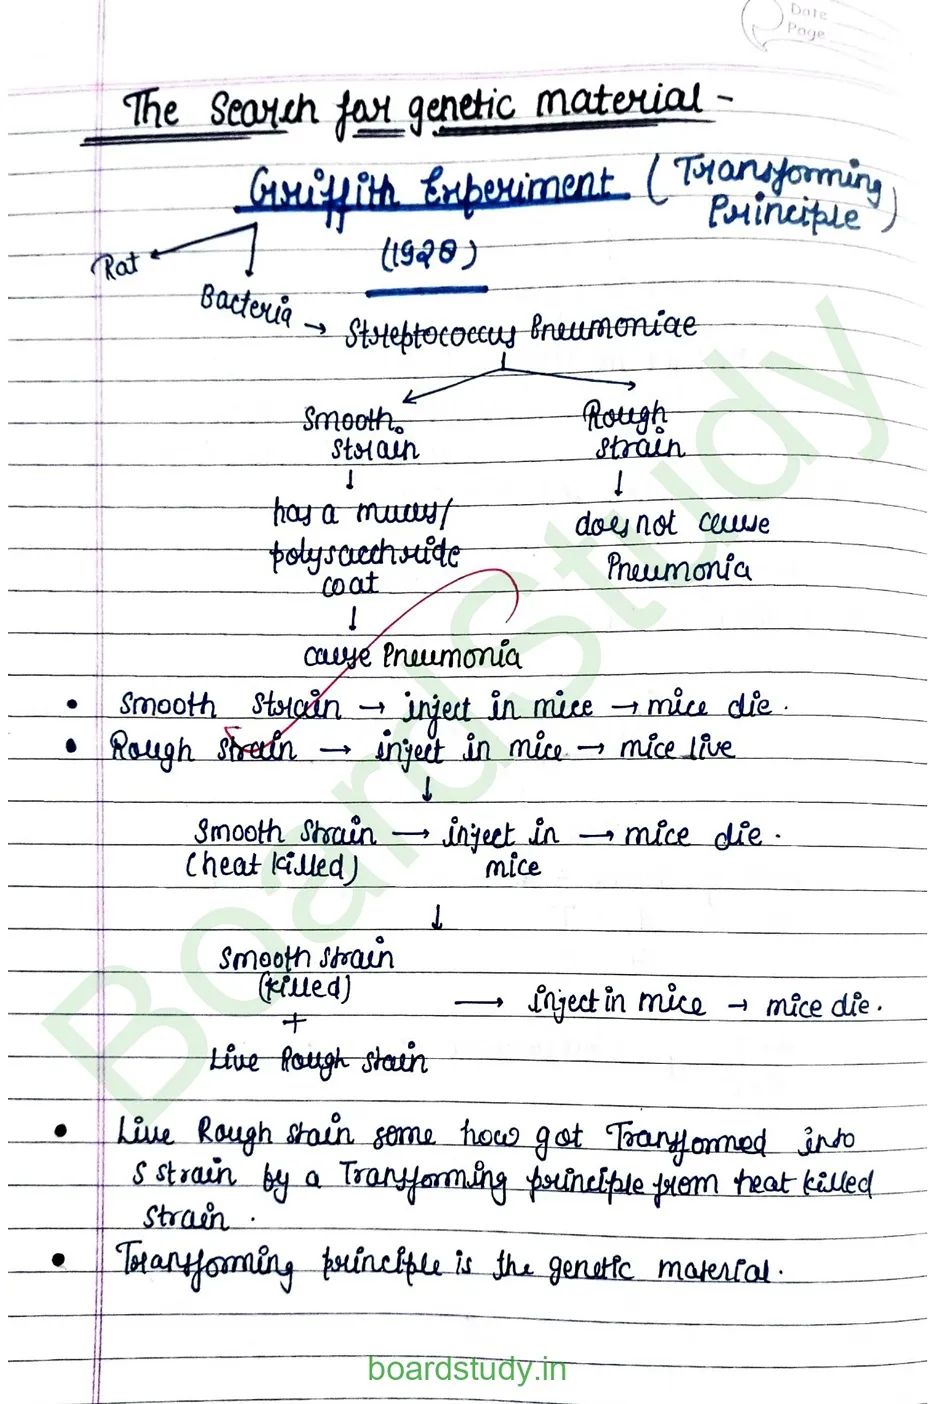 Date
Page
The Search for genetic material -
Griffith Experiment (Transforming
Principle)
(1928)
Rat
Bacteria → Streptococcus Pneumoniae
Smooth
strain
Rough
strain
↓
↓
has a mucus/
polysaccharide
coat
does not cause
Pneumonia
↓
cause Pneumonia
• Smooth Strain → inject in mice → mice die.
• Rough strain → inject in mice → mice live
↓
Smooth strain → inject in → mice die.
(heat killed) mice
↓
Smooth strain
(killed)
+
Live Rough strain
→ inject in mice → mice die.
• Live Rough strain some how got Transformed into
S strain by a Transforming principle from heat killed
strain.
• Transforming principle is the genetic material.
BoardStudy
boardstudy.in